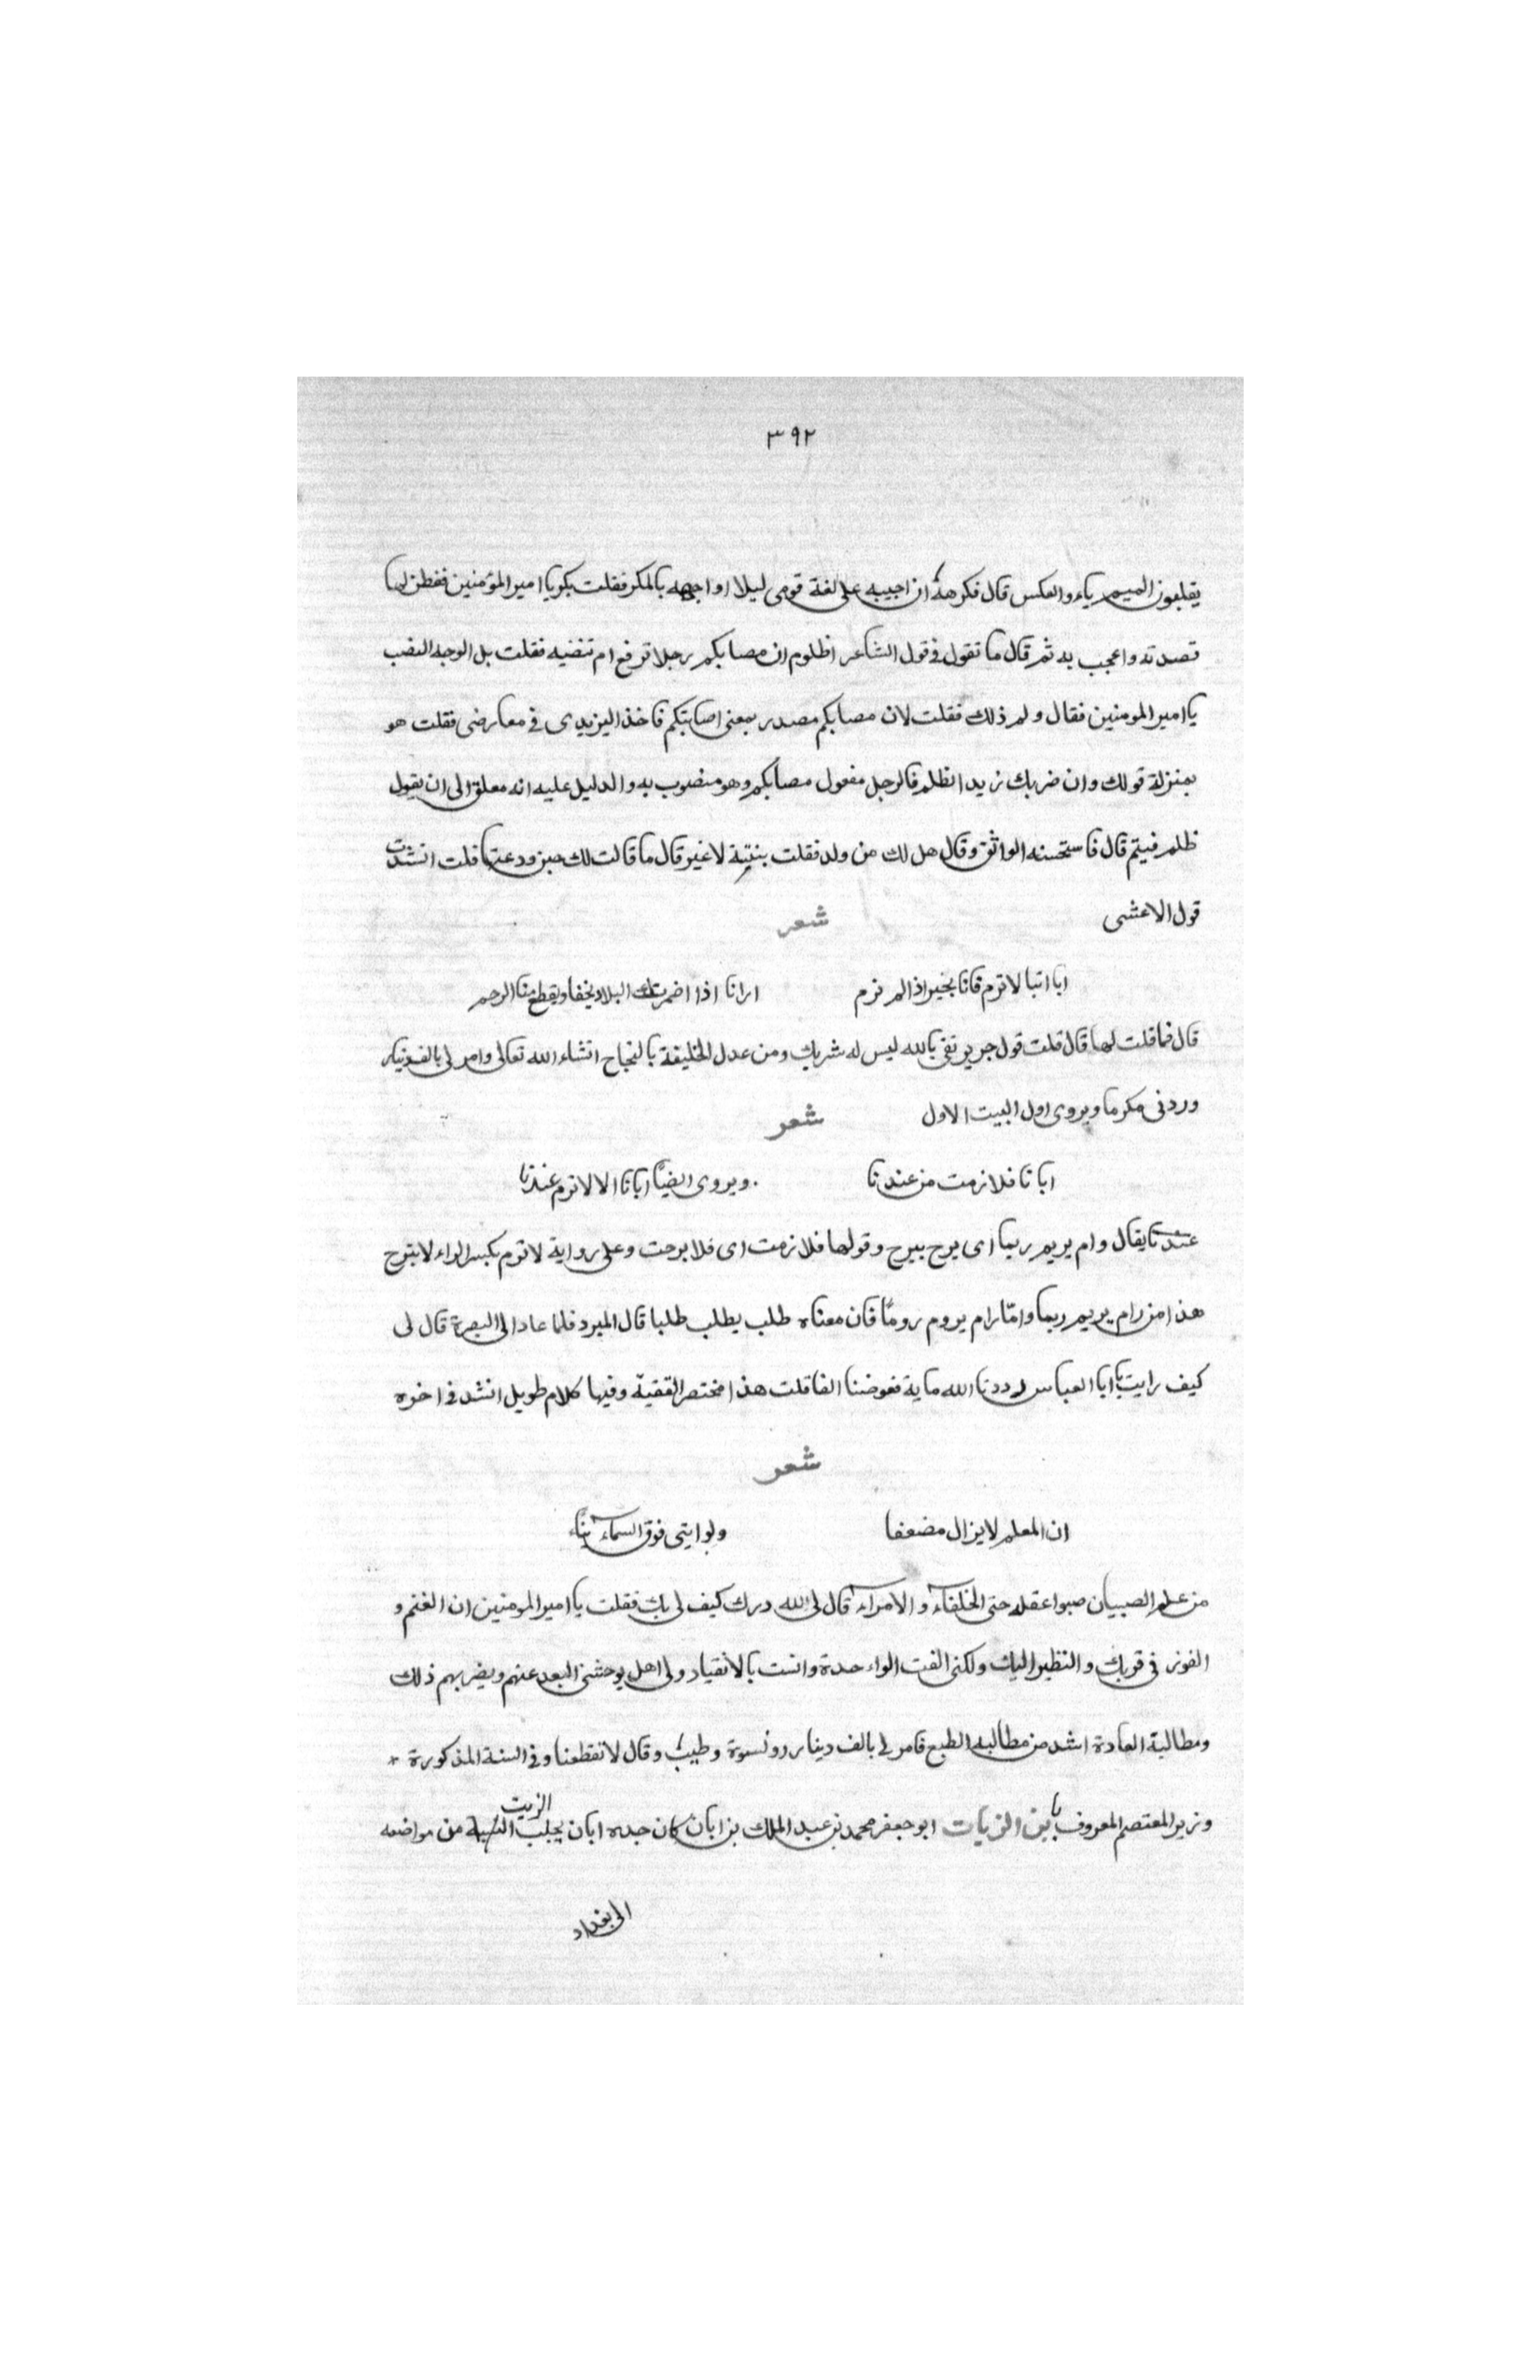 ٣٩٢
يقلبون الميم ياء والعكس قال فكرهة ان اجيبه على لغة قومى ليلا اواجهه بالمكر فقلت بكر يا امير المؤمنين ففطن لما
قصدته واعجب به ثم قال ما تقول فى قول الشاعر اظلوم ان مصابكم رجلا ترفع ام تنضبه فقلت بل الوجه النصب
يا امير المومنين فقال ولم ذلك فقلت لان مصابكم مصدر بمعنى اصابتكم فاخذ اليزيدى فى معارضى فقلت هو
بمنزلة قولك وان ضربك زيدا اظلم فالرجل مفعول مصابكم وهو منصوب به والدليل عليه انه معلق الى ان يقول
ظلم فيتم قال فاستحسنه الواثق وقال هل لك من ولد فقلت بنتية لا غير قال ما قالت لك حين ودعتها قلت انشدت
قول الاعشى شعر
ابا ابتا لا ترم فانا بخير اذا لم ترم ارانا اذا اضمرتك البلاد يخفا ويقطع منا الرحم
قال فما قلت لها قال قلت قول جرير ثقى بالله ليس له شريك ومن عدل الخليفة بالنجاح انشاء الله تعالى وامر لى بالف دينار
وردنى مكرما ويروى اول البيت الاول شعر
ابانا فلا زمت من عندنا ويروى ايضًا ابانا الا لا ترم عندنا
عندنا يقال وام يريم ريما اى يرح بيرح وقولها فلا زمت اى فلا برحت وعلى رواية لا تريم بكسر الراء لا يتبرح
هذا من رام يريم ريما وامّا رام يروم رومًا فان معناه طلب يطلب طلبا قال المبرد فلما عاد الى البصرة قال لى
كيف رايت يا ابا العباس رددنا الله ماية فعوضنا الفا قلت هذا مختصر القضيّة وفيها كلام طويل انشد فى اخره
شعر
ان المعلم لا يزال مضعفا ولو ابتى فوق السماء بناء
من علم الصبيان صبوا عقله حتى الخلفاء والامراء قال لى لله درك كيف لى بك فقلت يا امير المومنين ان الغنم و
الفوز فى قربك والنظير اليك ولكنى الفت الواحدة وانست بالانقياد ولى اهل يوحشنى البعد عنهم ويضر بهم ذلك
ومطالبة العادة اشد من مطالبة الطبع فامر لى بالف دينار وكسوة وطيب وقال لا تقطعنا وفى السنة المذكورة *
وزير المعتصم المعروف بابن الزيات ابو جعفر محمد بن عبد الملك بن ابان كان جده ابان يجلب الزيت من مواضعه
الى بغداد